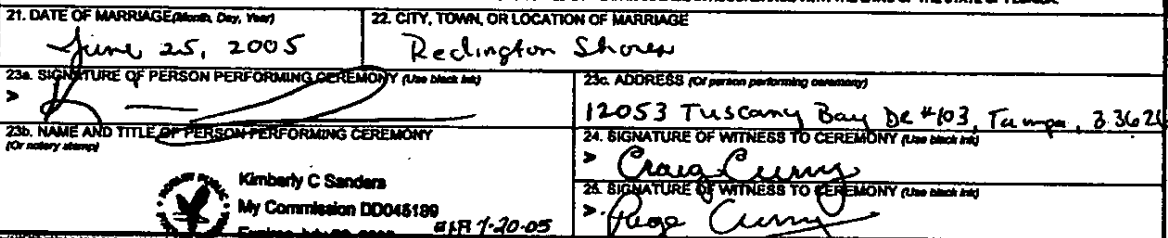 21. DATE OF MARRIAGE (Month, Day, Year)
June 25, 2005
22. CITY, TOWN, OR LOCATION OF MARRIAGE
Redington Shores
23a. SIGNATURE OF PERSON PERFORMING CEREMONY (Use black ink)
>
23c. ADDRESS (Of person performing ceremony)
12053 Tuscany Bay DR #103, Tampa, 3362
23b. NAME AND TITLE OF PERSON PERFORMING CEREMONY
(Or notary stamp)
Kimberly C Sanders
My Commission DD045189
Expires
7-20-05
24. SIGNATURE OF WITNESS TO CEREMONY (Use black ink)
> Craig Curry
25. SIGNATURE OF WITNESS TO CEREMONY (Use black ink)
> Page Curry